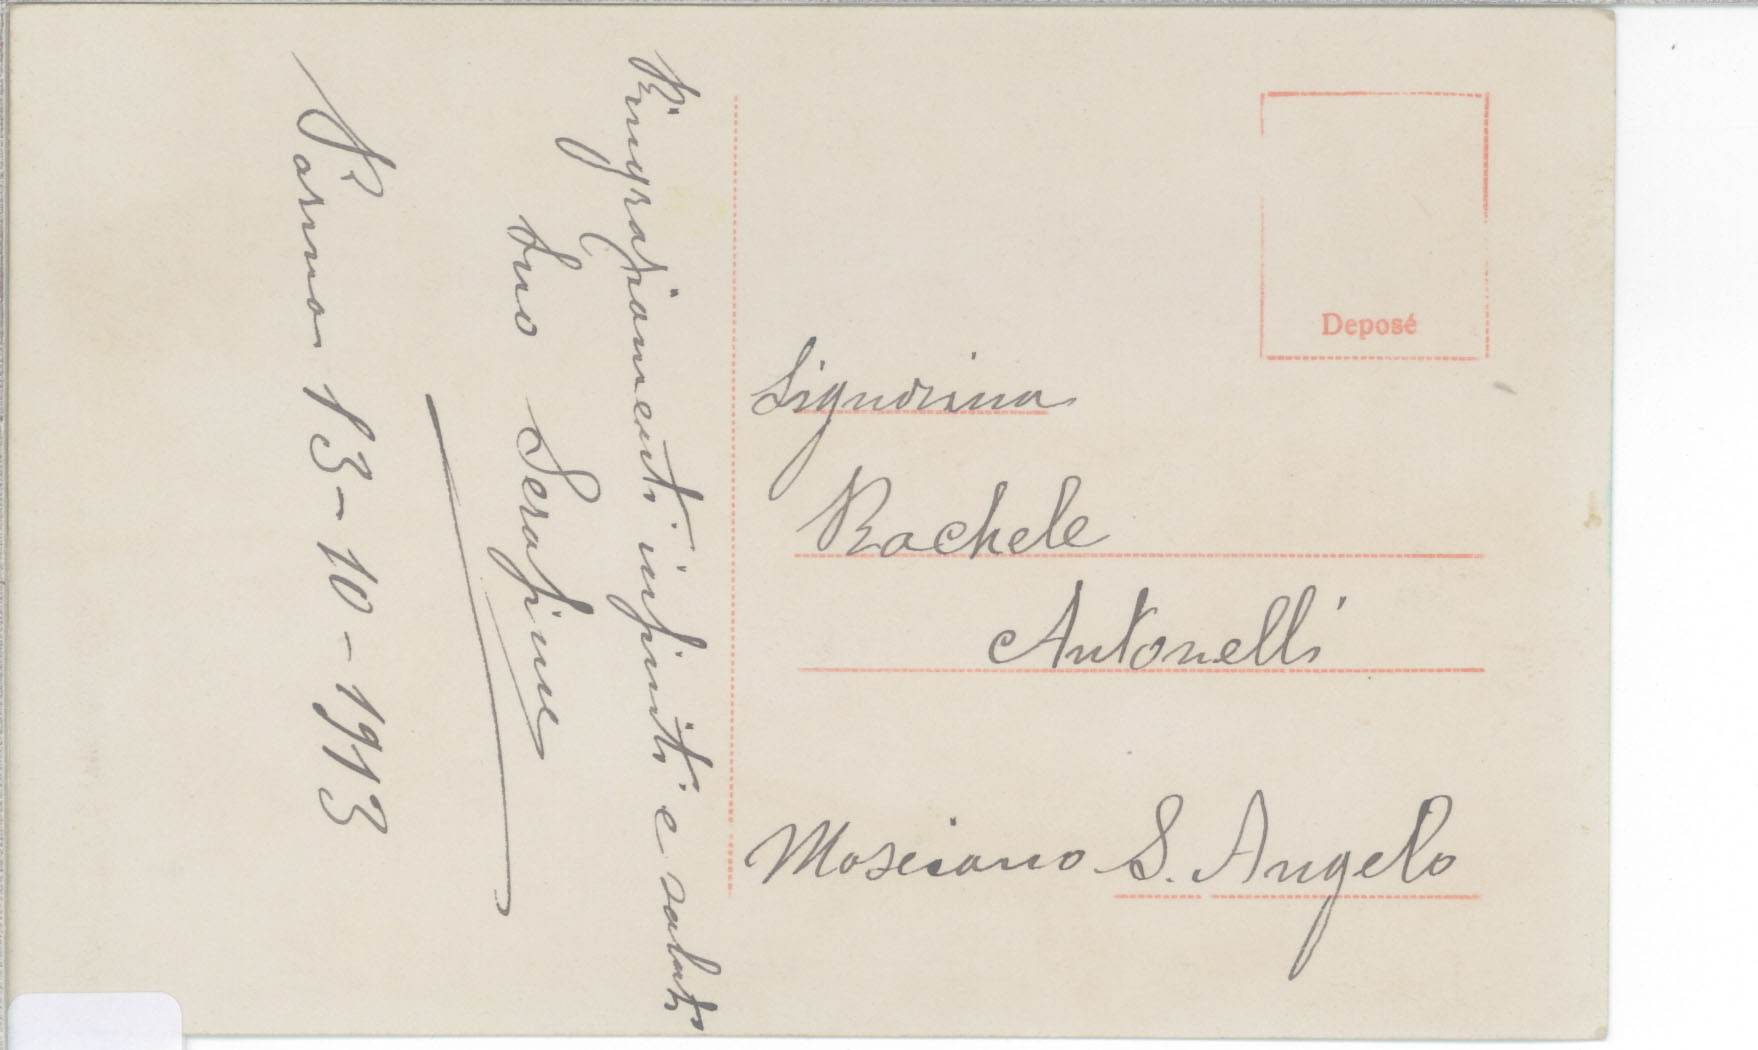 Ringraziamenti infiniti e saluti
Suo Serafine
Parma 13-10-1913
Deposé
Signorina
Rachele
Antonelli
Mosciano S. Angelo